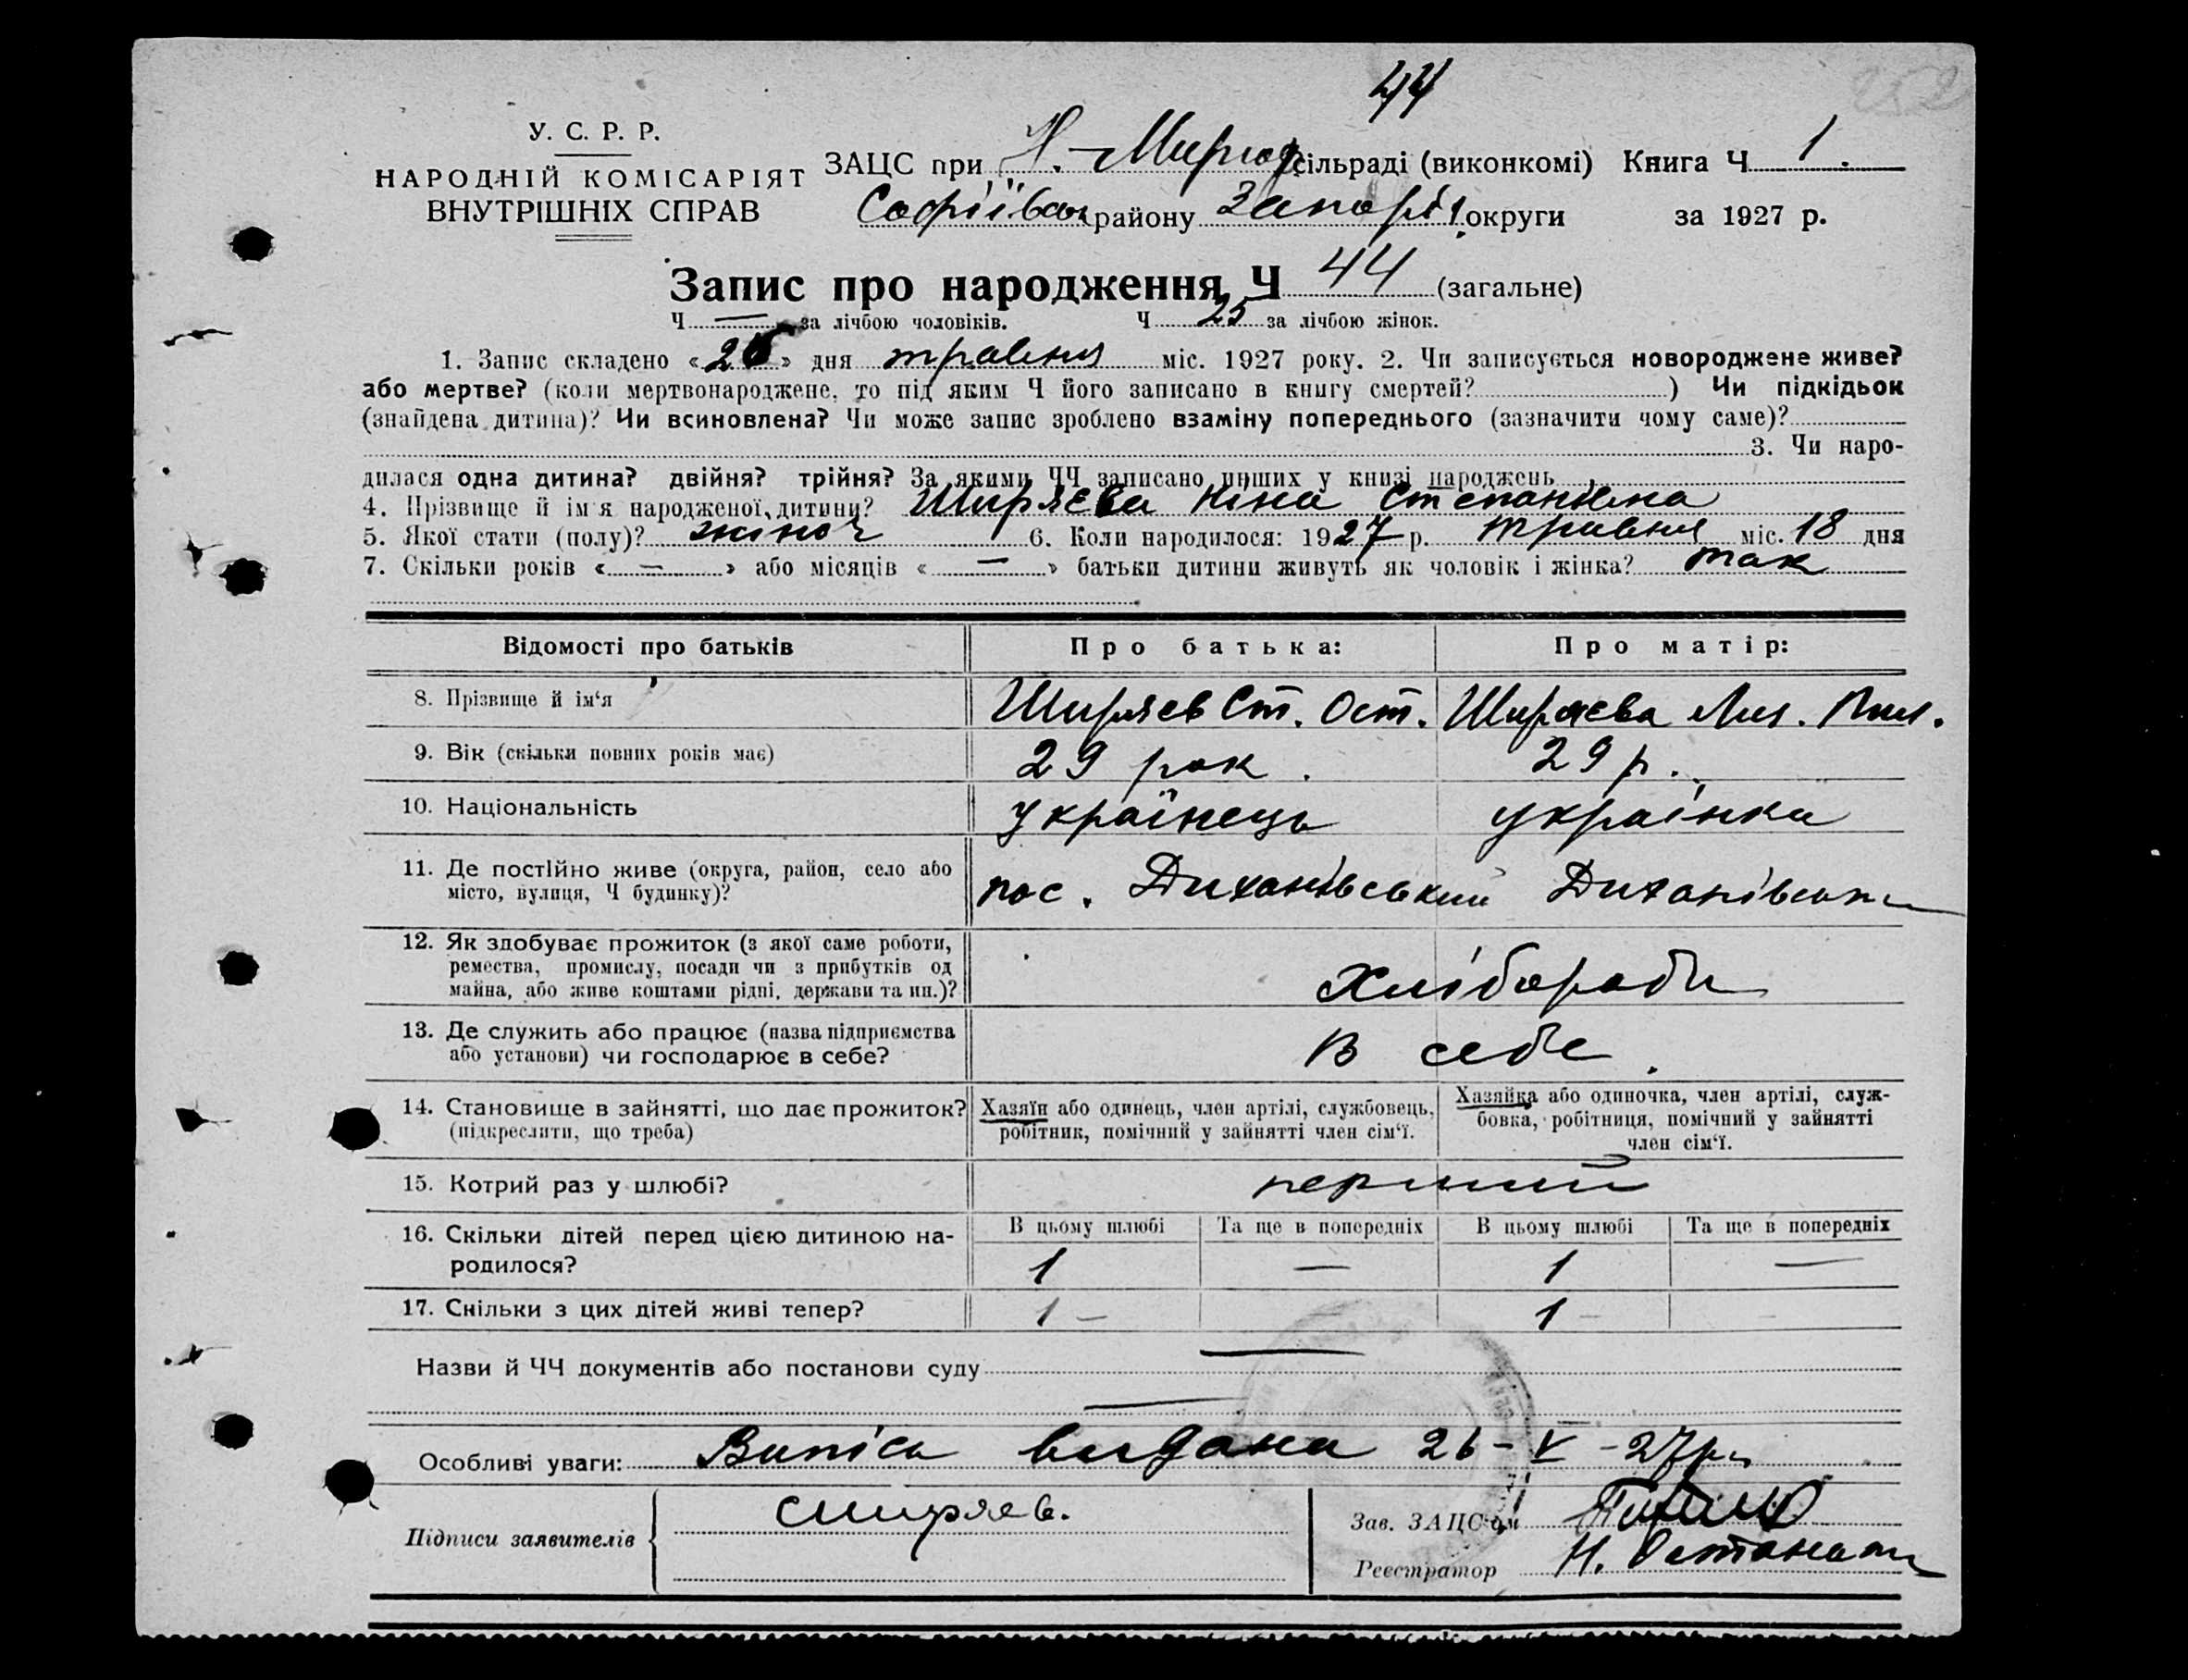 44
252
У. С. Р. Р.
НАРОДНІЙ КОМІСАРІЯТ
ВНУТРІШНІХ СПРАВ
ЗАЦС при Н.-Миргор сільраді (виконкомі) Книга Ч 1.
Софіївськ району Запоріз. округи за 1927 р.
Запис про народження Ч 44 (загальне)
Ч — за лічбою чоловіків. Ч 25 за лічбою жінок.
1. Запис складено «26» дня травня міс. 1927 року. 2. Чи записується новороджене живе?
або мертве? (коли мертвонароджене, то під яким Ч його записано в книгу смертей? ) Чи підкідьок
(знайдена дитина)? Чи всиновлена? Чи може запис зроблено взаміну попереднього (зазначити чому саме)?
3. Чи наро-
дилася одна дитина? двійня? трійня? За якими ЧЧ записано инших у книзі народжень
4. Прізвище й ім'я народженої дитини? Ширяєва Ніна Степанівна
5. Якої стати (полу)? жіноч 6. Коли народилося: 1927 р. травня міс. 18 дня
7. Скільки років «—» або місяців «—» батьки дитини живуть як чоловік і жінка? так
Відомості про батьків Про батька: Про матір:
8. Прізвище й ім‘я Ширяєв Ст. Ост. Ширяєва
9. Вік (скільки повних років має) 29 рок. 29 р.
10. Національність українець українка
11. Де постійно живе (округа, район, село або
місто, вулиця, Ч будинку)? пос. Диханівський Диханівськи
12. Як здобуває прожиток (з якої саме роботи,
ремества, промислу, посади чи з прибутків од
майна, або живе коштами рідні, держави та ин.)? Хліборобы
13. Де служить або працює (назва підприємства
або установи) чи господарює в себе? В себе.
14. Становище в зайнятті, що дає прожиток?
(підкреслити, що треба)
Хазяїн або одинець, член артілі, службовець,
робітник, помічний у зайнятті член сім‘ї.
Хазяйка або одиночка, член артілі, служ-
бовка, робітниця, помічний у зайнятті
член сім‘ї.
15. Котрий раз у шлюбі? перший
16. Скільки дітей перед цією дитиною на-
родилося?
В цьому шлюбі Та ще в попередніх В цьому шлюбі Та ще в попередніх
1 — 1 —
17. Скільки з цих дітей живі тепер? 1 – — 1 – –
Назви й ЧЧ документів або постанови суду —
Особливі уваги: Випісь видана 26-V-27р.
Підписи заявителів Ширяєв.
Зав. ЗАЦС'ом
Реєстратор Н.